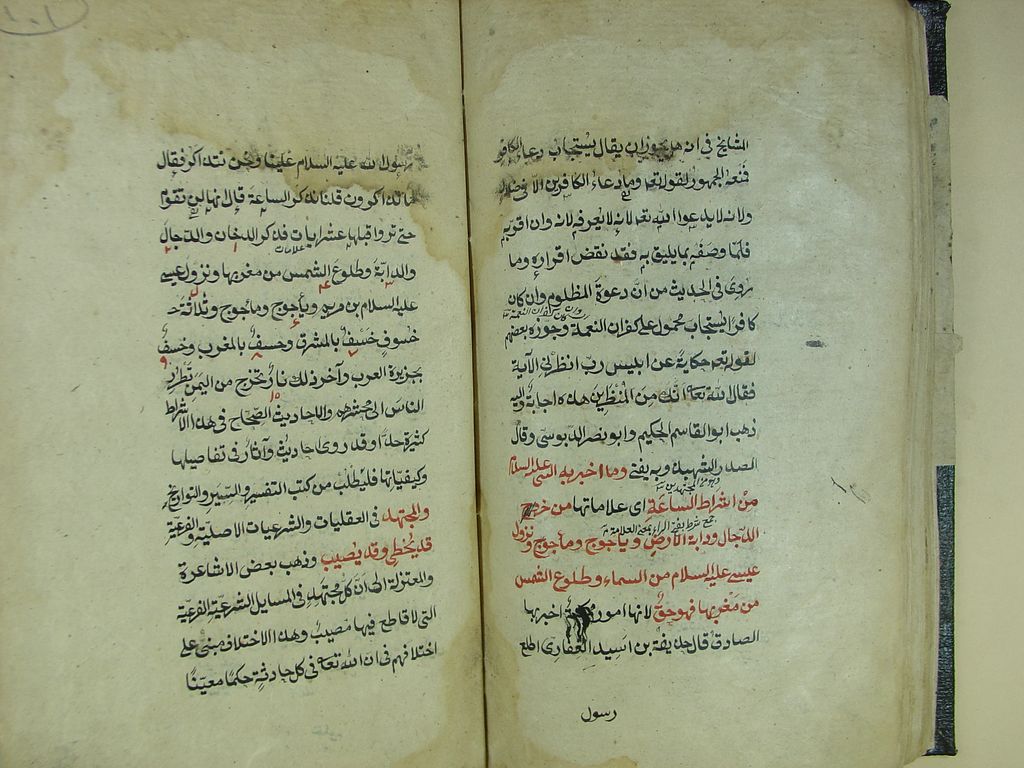 المشايخ في انه هل يجوز ان يقال يستجاب دعاء الكافر
فمنعه الجمهور لقوله تعه وما دعاء الكافرين الا في ضلال
ولانه لا يدعوا الله تعه لانه لا يعرفه لانه وان اقر به
فلما وصفه بما لا يليق به فقد نقض اقراره وما
روى في الحديث من ان دعوة المظلوم وان كان
كافرا يستجاب محمول على كفران النعمة وجوزه بعضهم
لقوله تعه حكاية عن ابليس رب انظرني الآية
فقال الله تعه انك من المنظرين هذه اجابة واليه
ذهب ابو القاسم الحكيم وابو نصر الدبوسي وقال
الصدر الشهيد وبه يفتى وما اخبر به النبى عليه السلام
من اشراط الساعة اى علاماتها من خروج
جمع شرط بفتح الراء بمعنى العلامة
الدجال ودابة الارض ويأجوج ومأجوج ونزول
عيسى عليه السلام من السماء وطلوع الشمس
من مغربها فهو حق لانها امور ممكنة اخبر بها
الصادق قال حذيفة بن اسيد الغفارى اطلع
رسول
١٠١
رسول الله عليه السلام علينا ونحن نتذاكر فقال
ما تذاكرون قلنا نذكر الساعة قال انها لن تقوم
حتى تروا قبلها عشر ايات فذكر الدخان والدجال
علامات
والدابة وطلوع الشمس من مغربها ونزول عيسى
عليه السلام بن مريم ويأجوج ومأجوج وثلاثة
خسوف خسف بالمشرق وخسف بالمغرب وخسف
بجزيرة العرب وآخر ذلك نار تخرج من اليمن تطرد
الناس الى محشرهم والاحاديث الصحاح في هذه الاشراط
كثيرة جدا وقد روى احاديث وآثار في تفاصيلها
وكيفياتها فليطلب من كتب التفسير والسير والتواريخ
والمجتهد في العقليات والشرعيات الاصلية والفرعية
قد يخطى وقد يصيب وذهب بعض الاشاعرة
والمعتزلة الى ان كل مجتهد في المسايل الشرعية الفرعية
التى لا قاطع فيها مصيب وهذا الاختلاف مبنى على
اختلافهم في ان الله تعه في كل حادثة حكما معينا